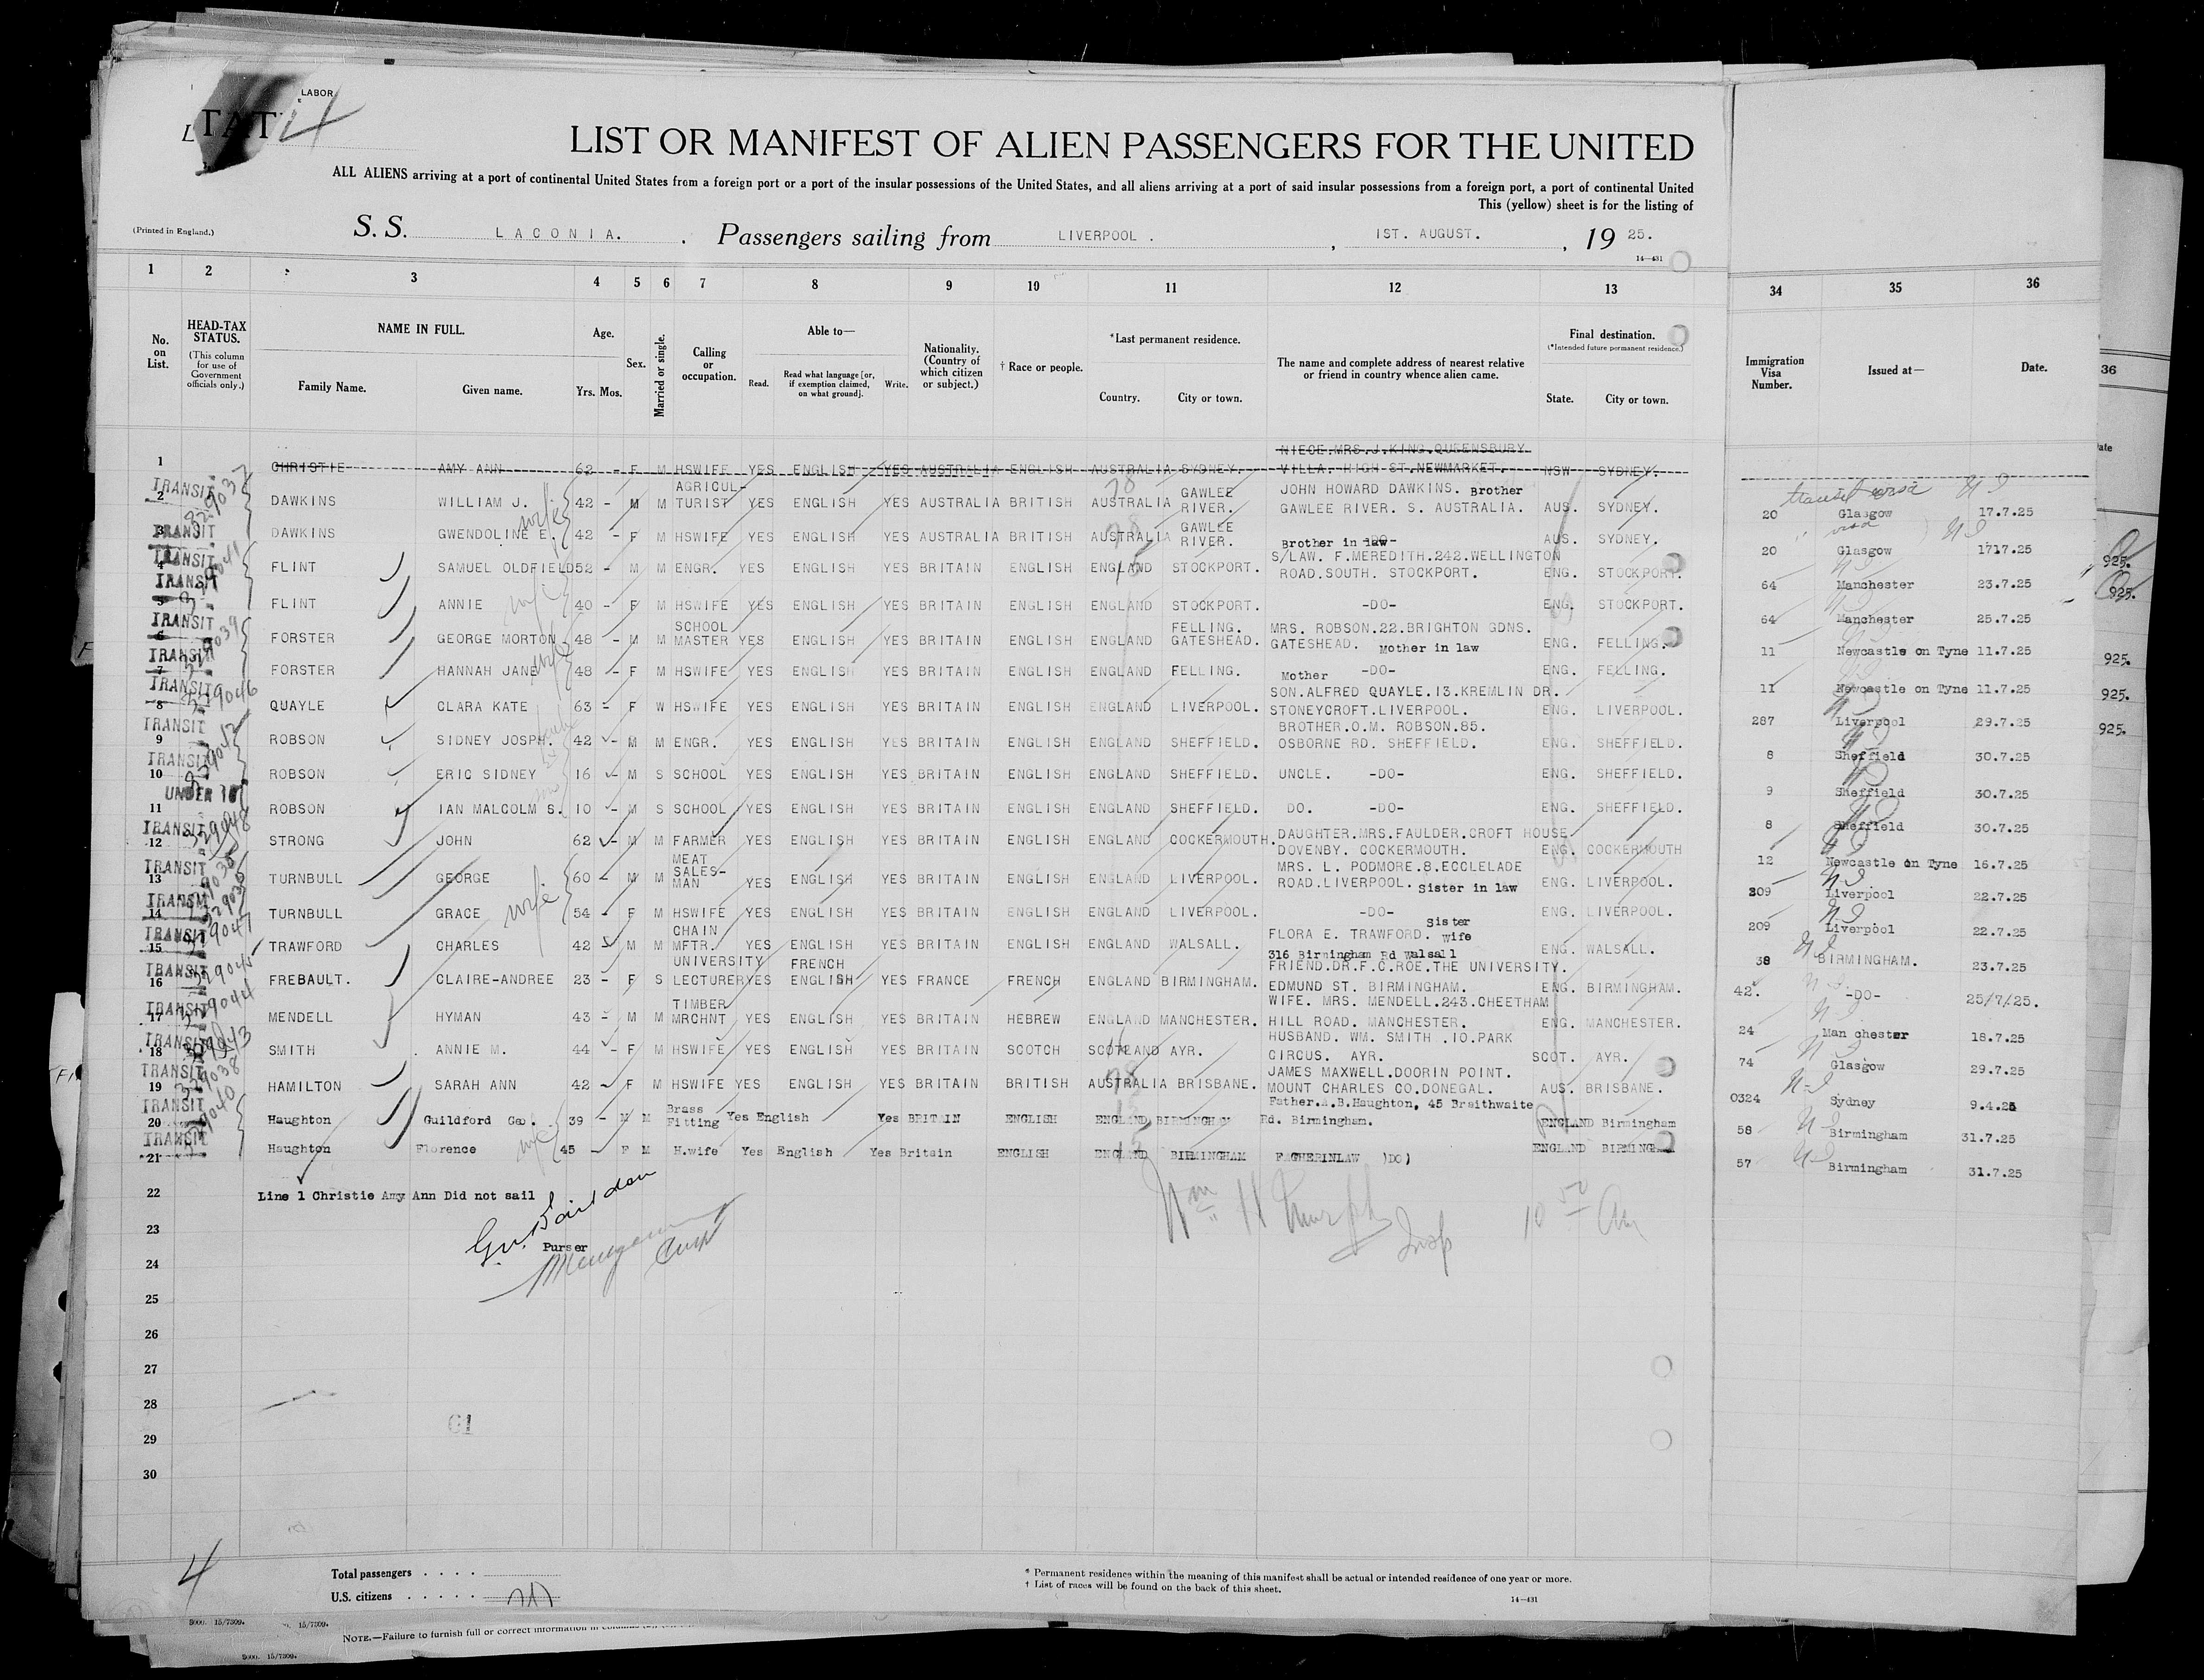 LABOR
TAT
4
LIST OR MANIFEST OF ALIEN PASSENGERS FOR THE UNITED
ALL ALIENS arriving at a port of continental United States from a foreign port or a port of the insular possessions of the United States, and all aliens arriving at a port of said insular possessions from a foreign port, a port of continental United
This (yellow) sheet is for the listing of
(Printed in England.) S. S. LACONIA. Passengers sailing from LIVERPOOL. , 1ST. AUGUST. , 19 25.
14—431
1 2 3 4 5 6 7 8 9 10 11 12 13 34 35 36
No. on List.
HEAD-TAX STATUS.
(This column for use of Government officials only.)
NAME IN FULL.
Family Name. Given name.
Age.
Yrs. Mos.
Sex.
Married or single.
Calling or occupation.
Able to—
Read. Read what language [or, if exemption claimed, on what ground]. Write.
Nationality. (Country of which citizen or subject.)
† Race or people.
*Last permanent residence.
Country. City or town.
The name and complete address of nearest relative or friend in country whence alien came.
Final destination.
(*Intended future permanent residence.)
State. City or town.
Immigration Visa Number.
Issued at—
Date.
36
NIECE.MRS.J.KING.QUEENSBURY
1 CHRISTIE AMY ANN 62 - F M HSWIFE YES ENGLISH YES AUSTRALIA ENGLISH AUSTRALIA SYDNEY. VILLA. HIGH ST.NEWMARKET. NSW SYDNEY.
TRANSIT 2 DAWKINS WILLIAM J. 42 - M M AGRICUL-TURIST YES ENGLISH YES AUSTRALIA BRITISH AUSTRALIA GAWLEE RIVER. JOHN HOWARD DAWKINS. Brother GAWLEE RIVER. S. AUSTRALIA. AUS. SYDNEY. transit visa 20 Glasgow 17.7.25
TRANSIT 3 DAWKINS GWENDOLINE E. wife 42 - F M HSWIFE YES ENGLISH YES AUSTRALIA BRITISH AUSTRALIA GAWLEE RIVER. -DO- Brother in law AUS. SYDNEY. visa 20 Glasgow 1717.25
TRANSIT 4 FLINT SAMUEL OLDFIELD 52 - M M ENGR. YES ENGLISH YES BRITAIN ENGLISH ENGLAND STOCKPORT. S/LAW. F.MEREDITH.242.WELLINGTON ROAD.SOUTH. STOCKPORT. ENG. STOCKPORT. 64 Manchester 23.7.25
TRANSIT 5 FLINT ANNIE wife 40 - F M HSWIFE YES ENGLISH YES BRITAIN ENGLISH ENGLAND STOCKPORT. -DO- ENG. STOCKPORT. 64 Manchester 25.7.25
TRANSIT 6 FORSTER GEORGE MORTON 48 - M M SCHOOL MASTER YES ENGLISH YES BRITAIN ENGLISH ENGLAND FELLING. GATESHEAD. MRS. ROBSON.22.BRIGHTON GDNS. GATESHEAD. Mother in law ENG. FELLING. 11 Newcastle on Tyne 11.7.25
TRANSIT 7 FORSTER HANNAH JANE wife 48 - F M HSWIFE YES ENGLISH YES BRITAIN ENGLISH ENGLAND FELLING. Mother -DO- ENG. FELLING. 11 Newcastle on Tyne 11.7.25
TRANSIT 329046 8 QUAYLE CLARA KATE 63 - F W HSWIFE YES ENGLISH YES BRITAIN ENGLISH ENGLAND LIVERPOOL. SON.ALFRED QUAYLE.13.KREMLIN DR. STONEYCROFT.LIVERPOOL. ENG. LIVERPOOL. 287 Liverpool 29.7.25
TRANSIT 9 ROBSON SIDNEY JOSPH. 42 - M M ENGR. YES ENGLISH YES BRITAIN ENGLISH ENGLAND SHEFFIELD. BROTHER.O.M. ROBSON.85. OSBORNE RD. SHEFFIELD. ENG. SHEFFIELD. 8 Sheffield 30.7.25
TRANSIT 10 ROBSON ERIC SIDNEY 16 - M S SCHOOL YES ENGLISH YES BRITAIN ENGLISH ENGLAND SHEFFIELD. UNCLE. -DO- ENG. SHEFFIELD. 9 Sheffield 30.7.25
UNDER 16 11 ROBSON IAN MALCOLM S. son 10 - M S SCHOOL YES ENGLISH YES BRITAIN ENGLISH ENGLAND SHEFFIELD. DO. -DO- ENG. SHEFFIELD. 8 Sheffield 30.7.25
TRANSIT 329048 12 STRONG JOHN 62 - M M FARMER YES ENGLISH YES BRITAIN ENGLISH ENGLAND COCKERMOUTH. DAUGHTER.MRS.FAULDER.CROFT HOUSE DOVENBY. COCKERMOUTH. ENG. COCKERMOUTH 12 Newcastle on Tyne 16.7.25
TRANSIT 13 TURNBULL GEORGE 60 - M M MEAT SALES-MAN YES ENGLISH YES BRITAIN ENGLISH ENGLAND LIVERPOOL. MRS. L. PODMORE.8.ECCLELADE ROAD.LIVERPOOL. Sister in law ENG. LIVERPOOL. 209 Liverpool 22.7.25
TRANSIT 14 TURNBULL GRACE wife 54 - F M HSWIFE YES ENGLISH YES BRITAIN ENGLISH ENGLAND LIVERPOOL. -DO- Sister ENG. LIVERPOOL. 209 Liverpool 22.7.25
TRANSIT 329047 15 TRAWFORD CHARLES 42 - M M CHAIN MFTR. YES ENGLISH YES BRITAIN ENGLISH ENGLAND WALSALL. FLORA E. TRAWFORD. Wife 316 Birmingham Rd Walsall ENG. WALSALL. 38 BIRMINGHAM. 23.7.25
TRANSIT 329045 16 FREBAULT. CLAIRE-ANDREE 23 - F S UNIVERSITY LECTURER YES FRENCH ENGLISH YES FRANCE FRENCH ENGLAND BIRMINGHAM. FRIEND.DR.F.C.ROE.THE UNIVERSITY. EDMUND ST. BIRMINGHAM. ENG. BIRMINGHAM. 42. -DO- 25/7/25.
TRANSIT 329044 17 MENDELL HYMAN 43 - M M TIMBER MRCHNT YES ENGLISH YES BRITAIN HEBREW ENGLAND MANCHESTER. WIFE. MRS. MENDELL.243.CHEETHAM HILL ROAD. MANCHESTER. ENG. MANCHESTER. 24 Man chester 18.7.25
TRANSIT 329043 18 SMITH ANNIE M. 44 - F M HSWIFE YES ENGLISH YES BRITAIN SCOTCH SCOTLAND AYR. HUSBAND. WM. SMITH .10.PARK CIRCUS. AYR. SCOT. AYR. 74 Glasgow 29.7.25
TRANSIT 329038 19 HAMILTON SARAH ANN 42 - F M HSWIFE YES ENGLISH YES BRITAIN BRITISH AUSTRALIA BRISBANE. JAMES MAXWELL.DOORIN POINT. MOUNT CHARLES CO.DONEGAL. AUS. BRISBANE. 0324 Sydney 9.4.25
TRANSIT 329040 20 Haughton Guildford Geo. 39 - M M Brass Fitting Yes English Yes BRITAIN ENGLISH ENGLAND BIRMINGHAM Father.A.B.Haughton, 45 Braithwaite Rd. Birmingham. ENGLAND Birmingham 58 Birmingham 31.7.25
TRANSIT 21 Haughton Florence wife 45 - F M H.wife Yes English Yes Britain ENGLISH ENGLAND BIRMINGHAM FAGHERINLAW )DO) ENGLAND BIRMINGHAM 57 Birmingham 31.7.25
22 Line 1 Christie Amy Ann Did not sail
23 Purser
Wm H Murphy Insp 10 50 AM
24
25
26
27
28
29
30
61
4
Total passengers . . . .
U.S. citizens . . . . .
* Permanent residence within the meaning of this manifest shall be actual or intended residence of one year or more.
† List of races will be found on the back of this sheet.
14—431
5000. 15/7309.
15/7309.
NOTE.—Failure to furnish full or correct information in columns
5000. 15/7309.
925.
925.
925.
925.
925.